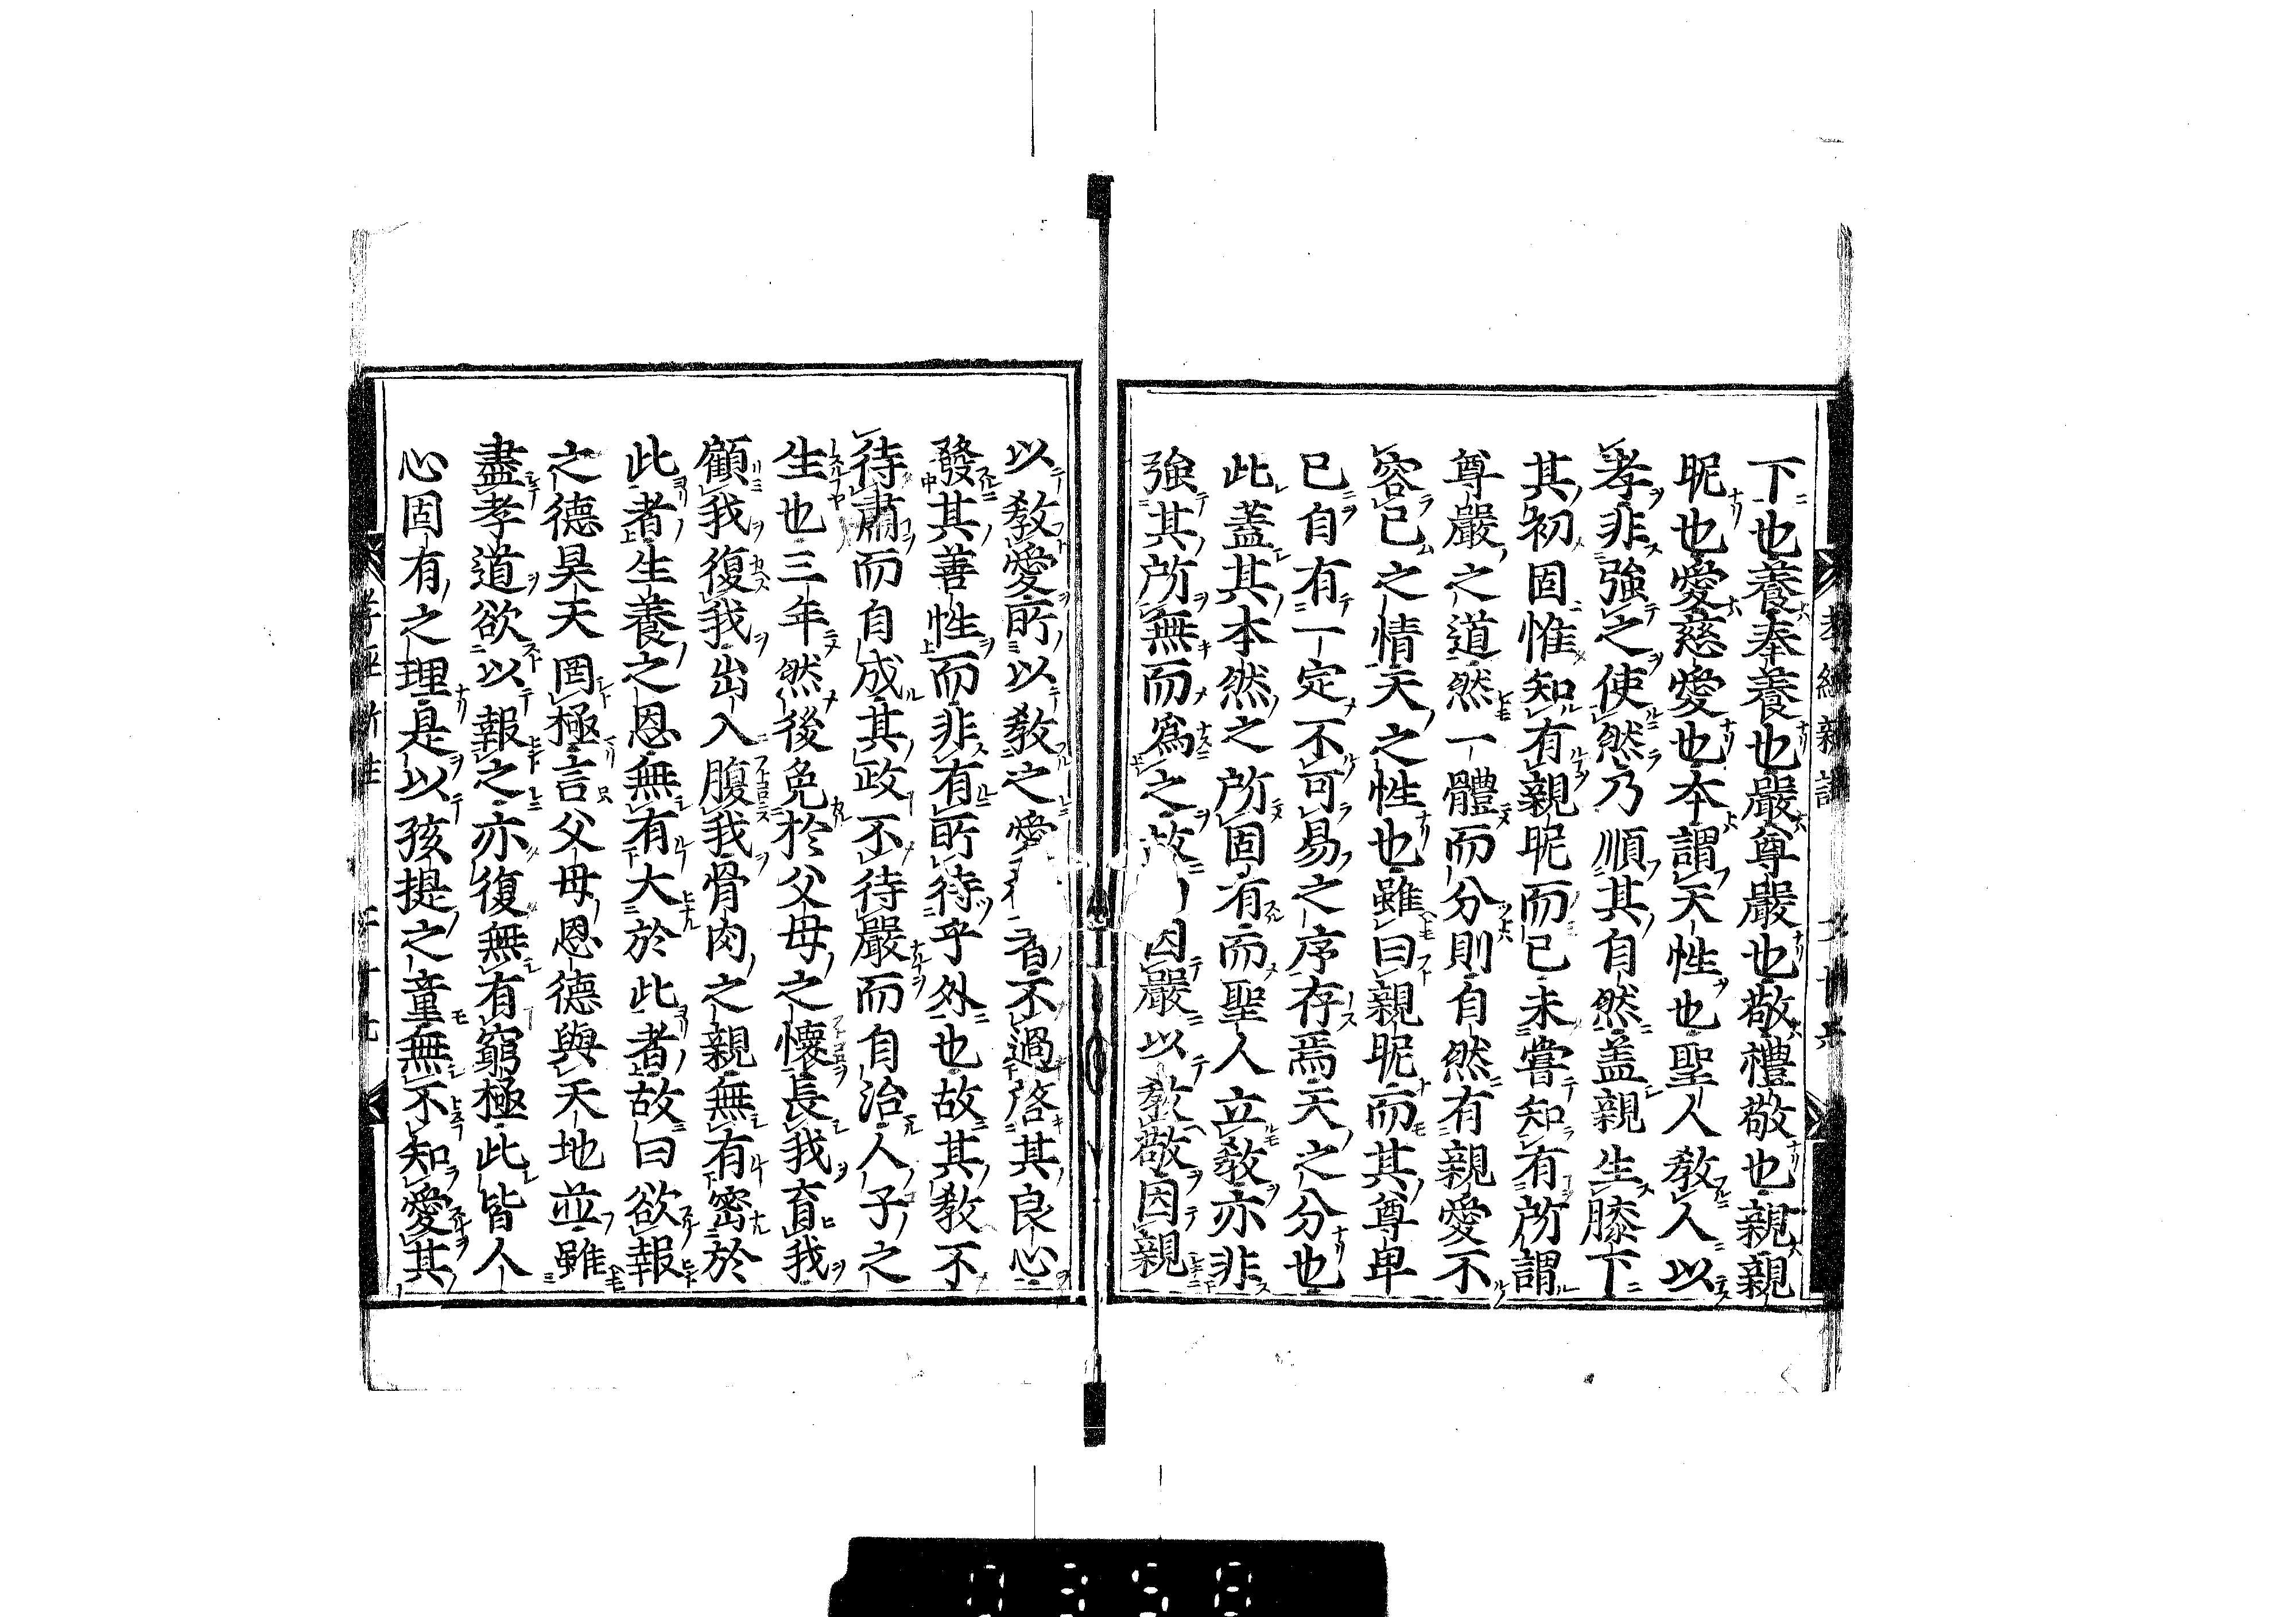 下也養奉養也嚴尊嚴也敬禮敬也親親
昵也愛慈愛也本謂天性也聖人教人以
孝非強之使然乃順其自然蓋親生膝下
其初固惟知有親昵而已未嘗知有所謂
尊嚴之道然一體而分則自然有親愛不
容已之情天之性也雖曰親昵而其尊卑
已自有一定不可易之序存焉天之分也
此蓋其本然之所固有而聖人立教亦非
強其所無而爲之故因嚴以教敬因親
以教愛所以教之愛者不過啓其良心
發其善性而非有所待乎外也故其教不
待肅而自成其政不待嚴而自治人子之
生也三年然後免於父母之懷長我育我
顧我復我出入腹我骨肉之親無有密於
此者生養之恩無有大於此者故曰欲報
之德昊天罔極言父母恩德與天地並雖
盡孝道欲以報之亦復無有窮極此皆人
心固有之理是以孩提之童無不知愛其
0358